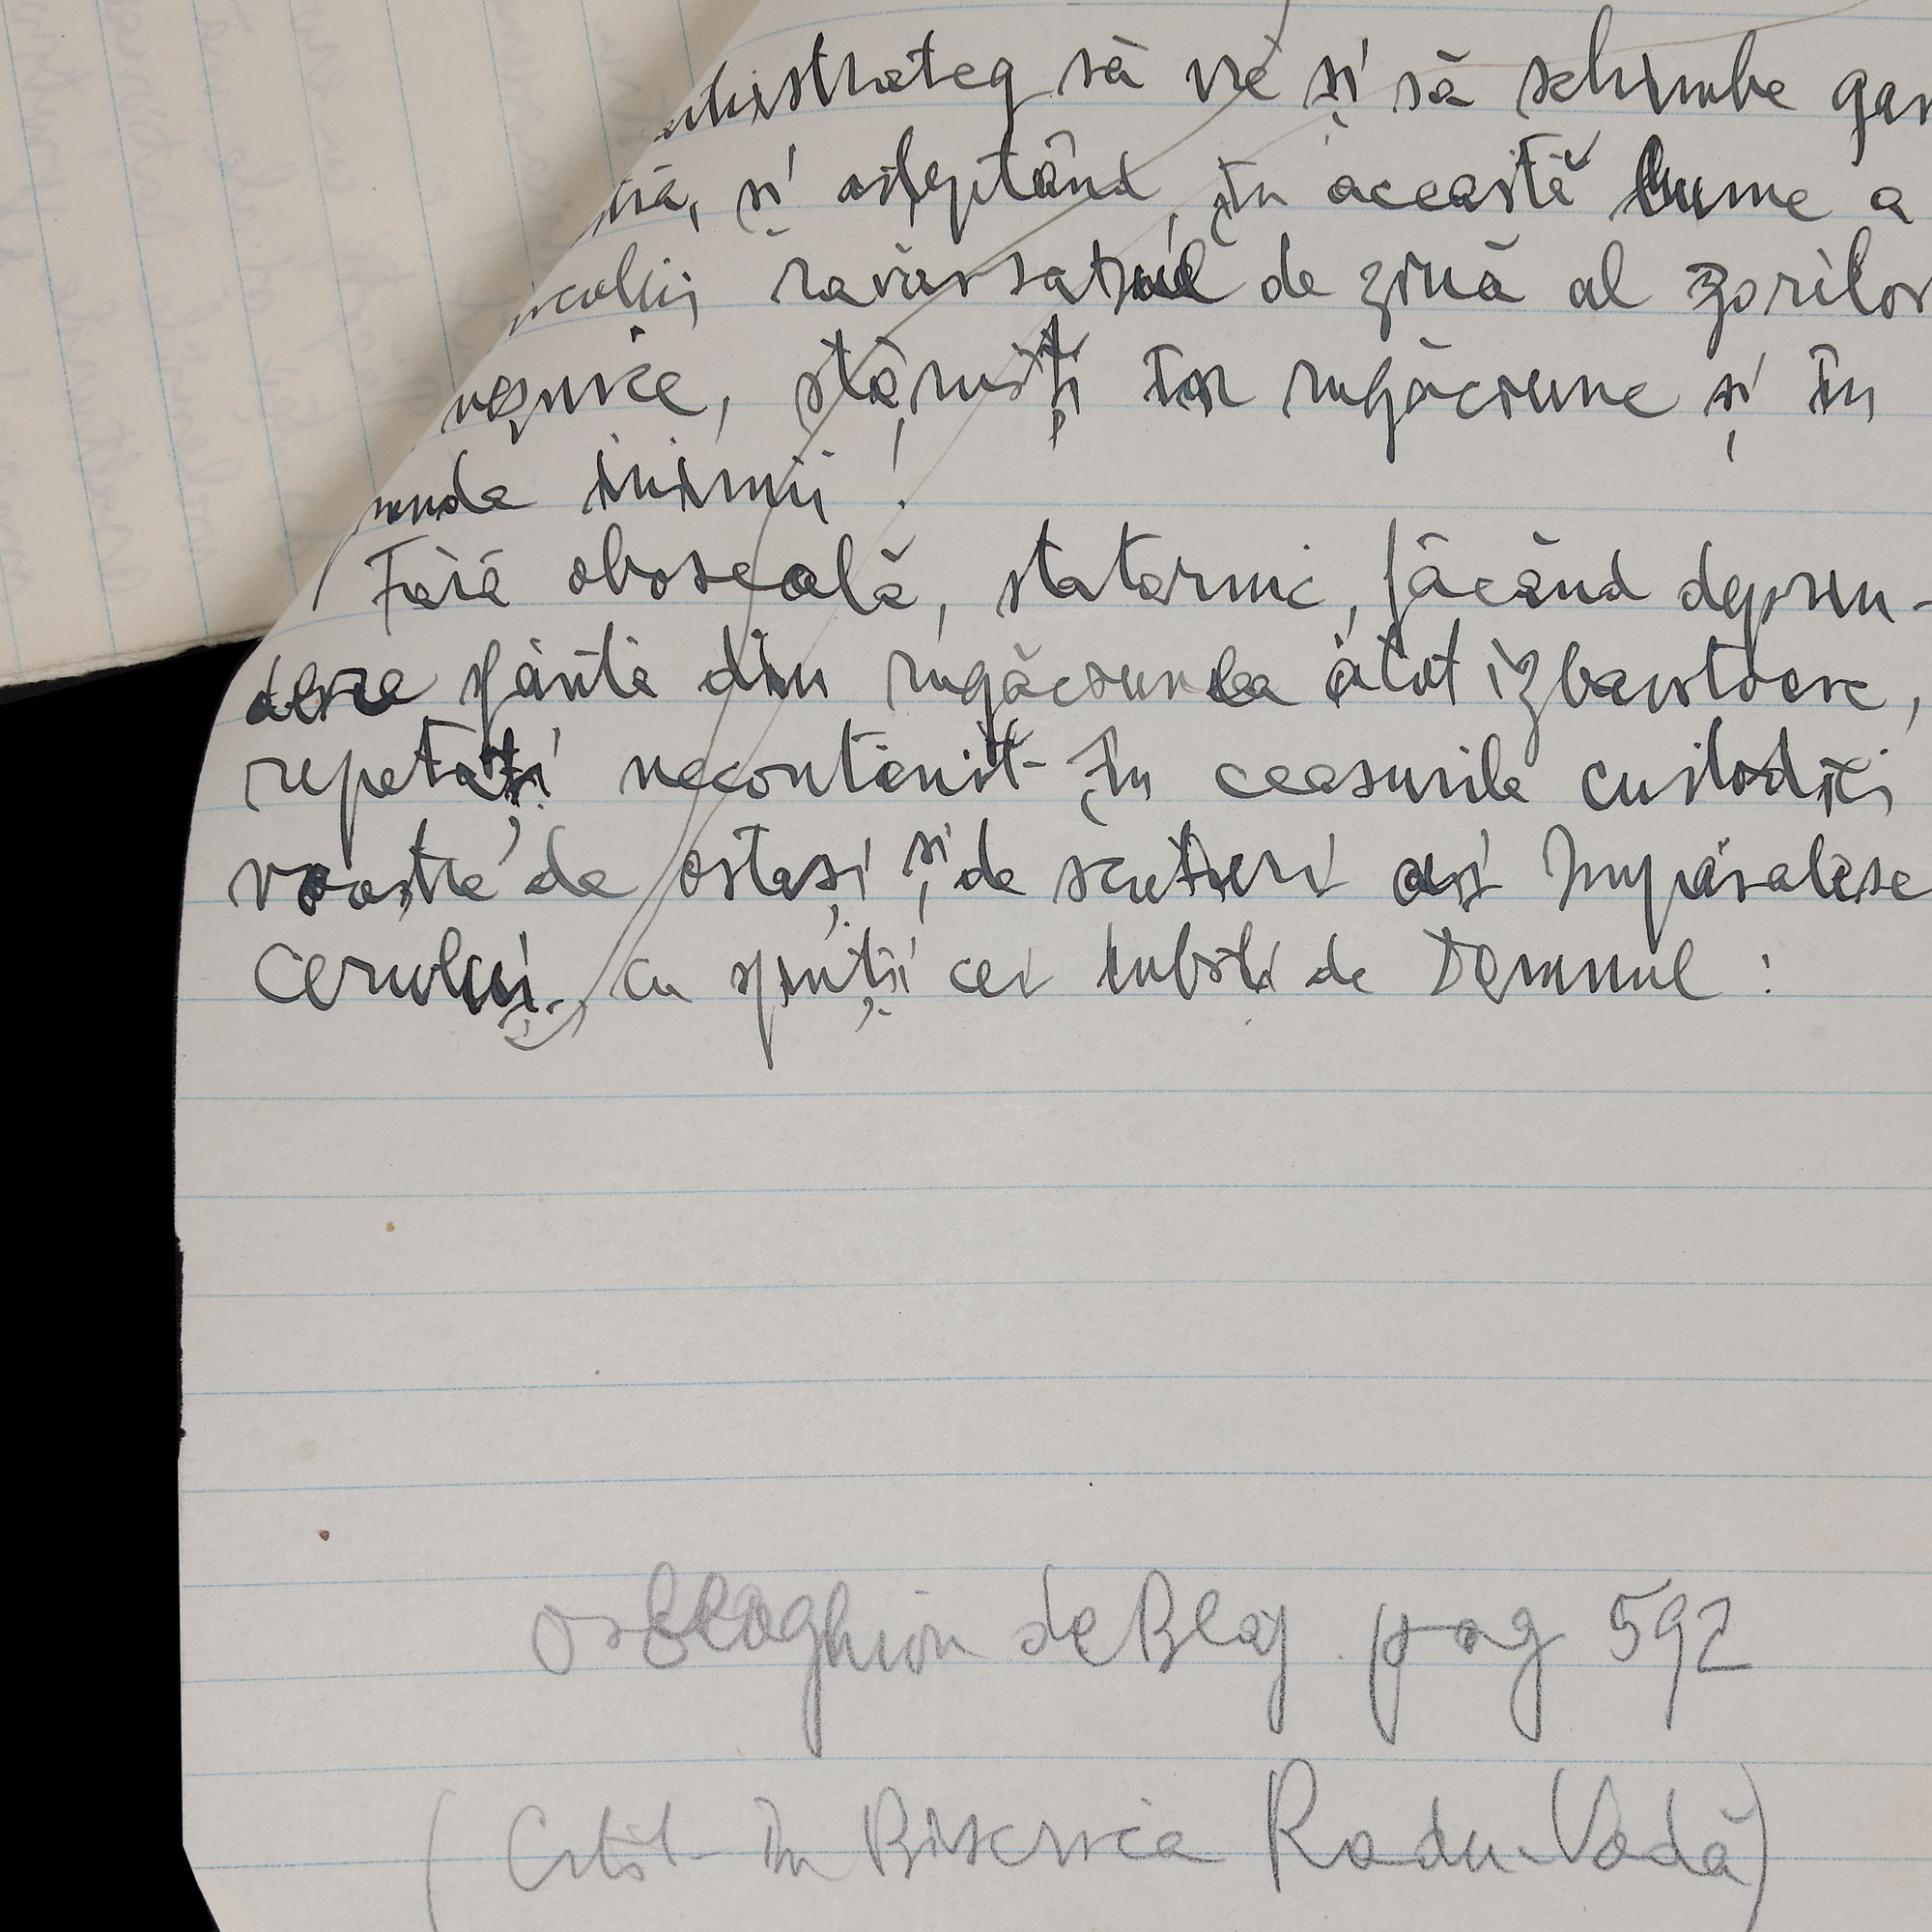 să vie și să schimbe
și așteptând, în această lume a
răvărsatul de ziuă al zorilor
stăruiți în rugăciune și în
inimii!
Fără oboseală, statornic, făcând deprin-
dere sfântă din rugăciunea atot izbăvitoare,
repetați necontenit în ceasurile custodiei
voastre de ostași și de scutieri ași Împărătese
Cerului, cu sfinții cei iubiți de Domnul:
de Blaj. pag 592
(Citit în Biserica Radu-Vodă)